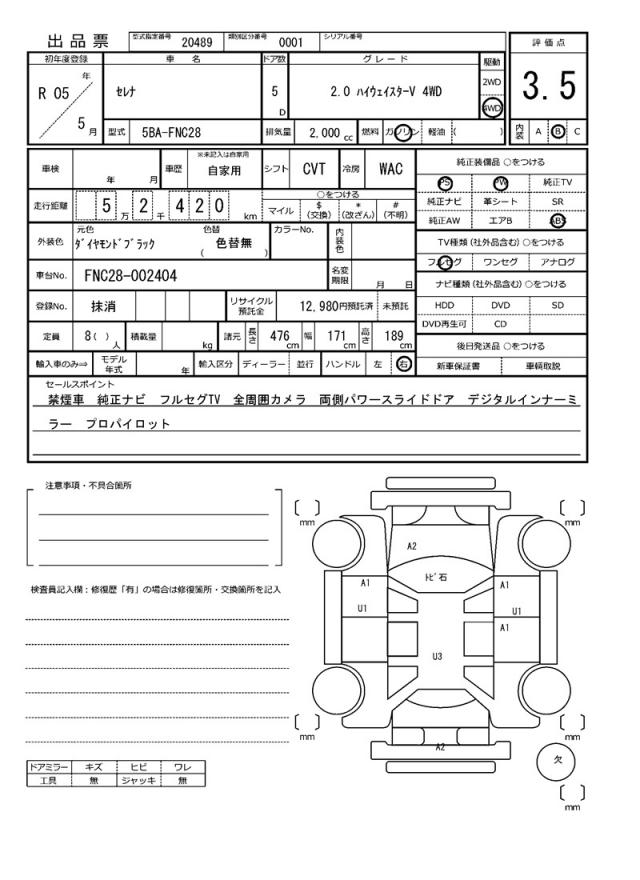 出品票 型式指定番号 20489 類別区分番号 0001 シリアル番号
評価点
3.5
内装 A B C
初年度登録 車名 ドア数 グレード 駆動
R 05 年 5 月
セレナ 5 D 2.0 ハイウェイスターV 4WD 2WD 4WD
型式 5BA-FNC28 排気量 2,000 cc 燃料 ガソリン 軽油 ( )
車検 年 月 車歴 ※未記入は自家用 自家用 シフト CVT 冷房 WAC
走行距離 5 万 2 千 4 2 0 km
○をつける
マイル $ (交換) * (改ざん) # (不明)
外装色 元色 ダイヤモンドブラック 色替 ( 色替無 ) カラーNo. 内装色
車台No. FNC28-002404 名変期限 月 日
登録No. 抹消 リサイクル預託金 12,980円預託済 未預託
定員 8( ) 人 積載量 kg 諸元 長さ 476 cm 幅 171 cm 高さ 189 cm
輸入車のみ⇒ モデル年式 年 輸入区分 ディーラー 並行 ハンドル 左 右
純正装備品 ○をつける
PS PW 純正TV
純正ナビ 革シート SR
純正AW エアB ABS
TV種類 (社外品含む) ○をつける
フルセグ ワンセグ アナログ
ナビ種類 (社外品含む) ○をつける
HDD DVD SD
DVD再生可 CD
後日発送品 ○をつける
新車保証書 車輌取説
セールスポイント
禁煙車 純正ナビ フルセグTV 全周囲カメラ 両側パワースライドドア デジタルインナーミ
ラー プロパイロット
注意事項・不具合箇所
検査員記入欄：修復歴「有」の場合は修復箇所・交換箇所を記入
ドアミラー キズ ヒビ ワレ
工具 無 ジャッキ 無
[ ] mm [ ] mm
A2
トビ石
A1 A1
U1 U1
A1
U3
[ ] mm [ ] mm
A2
欠
[ ] mm